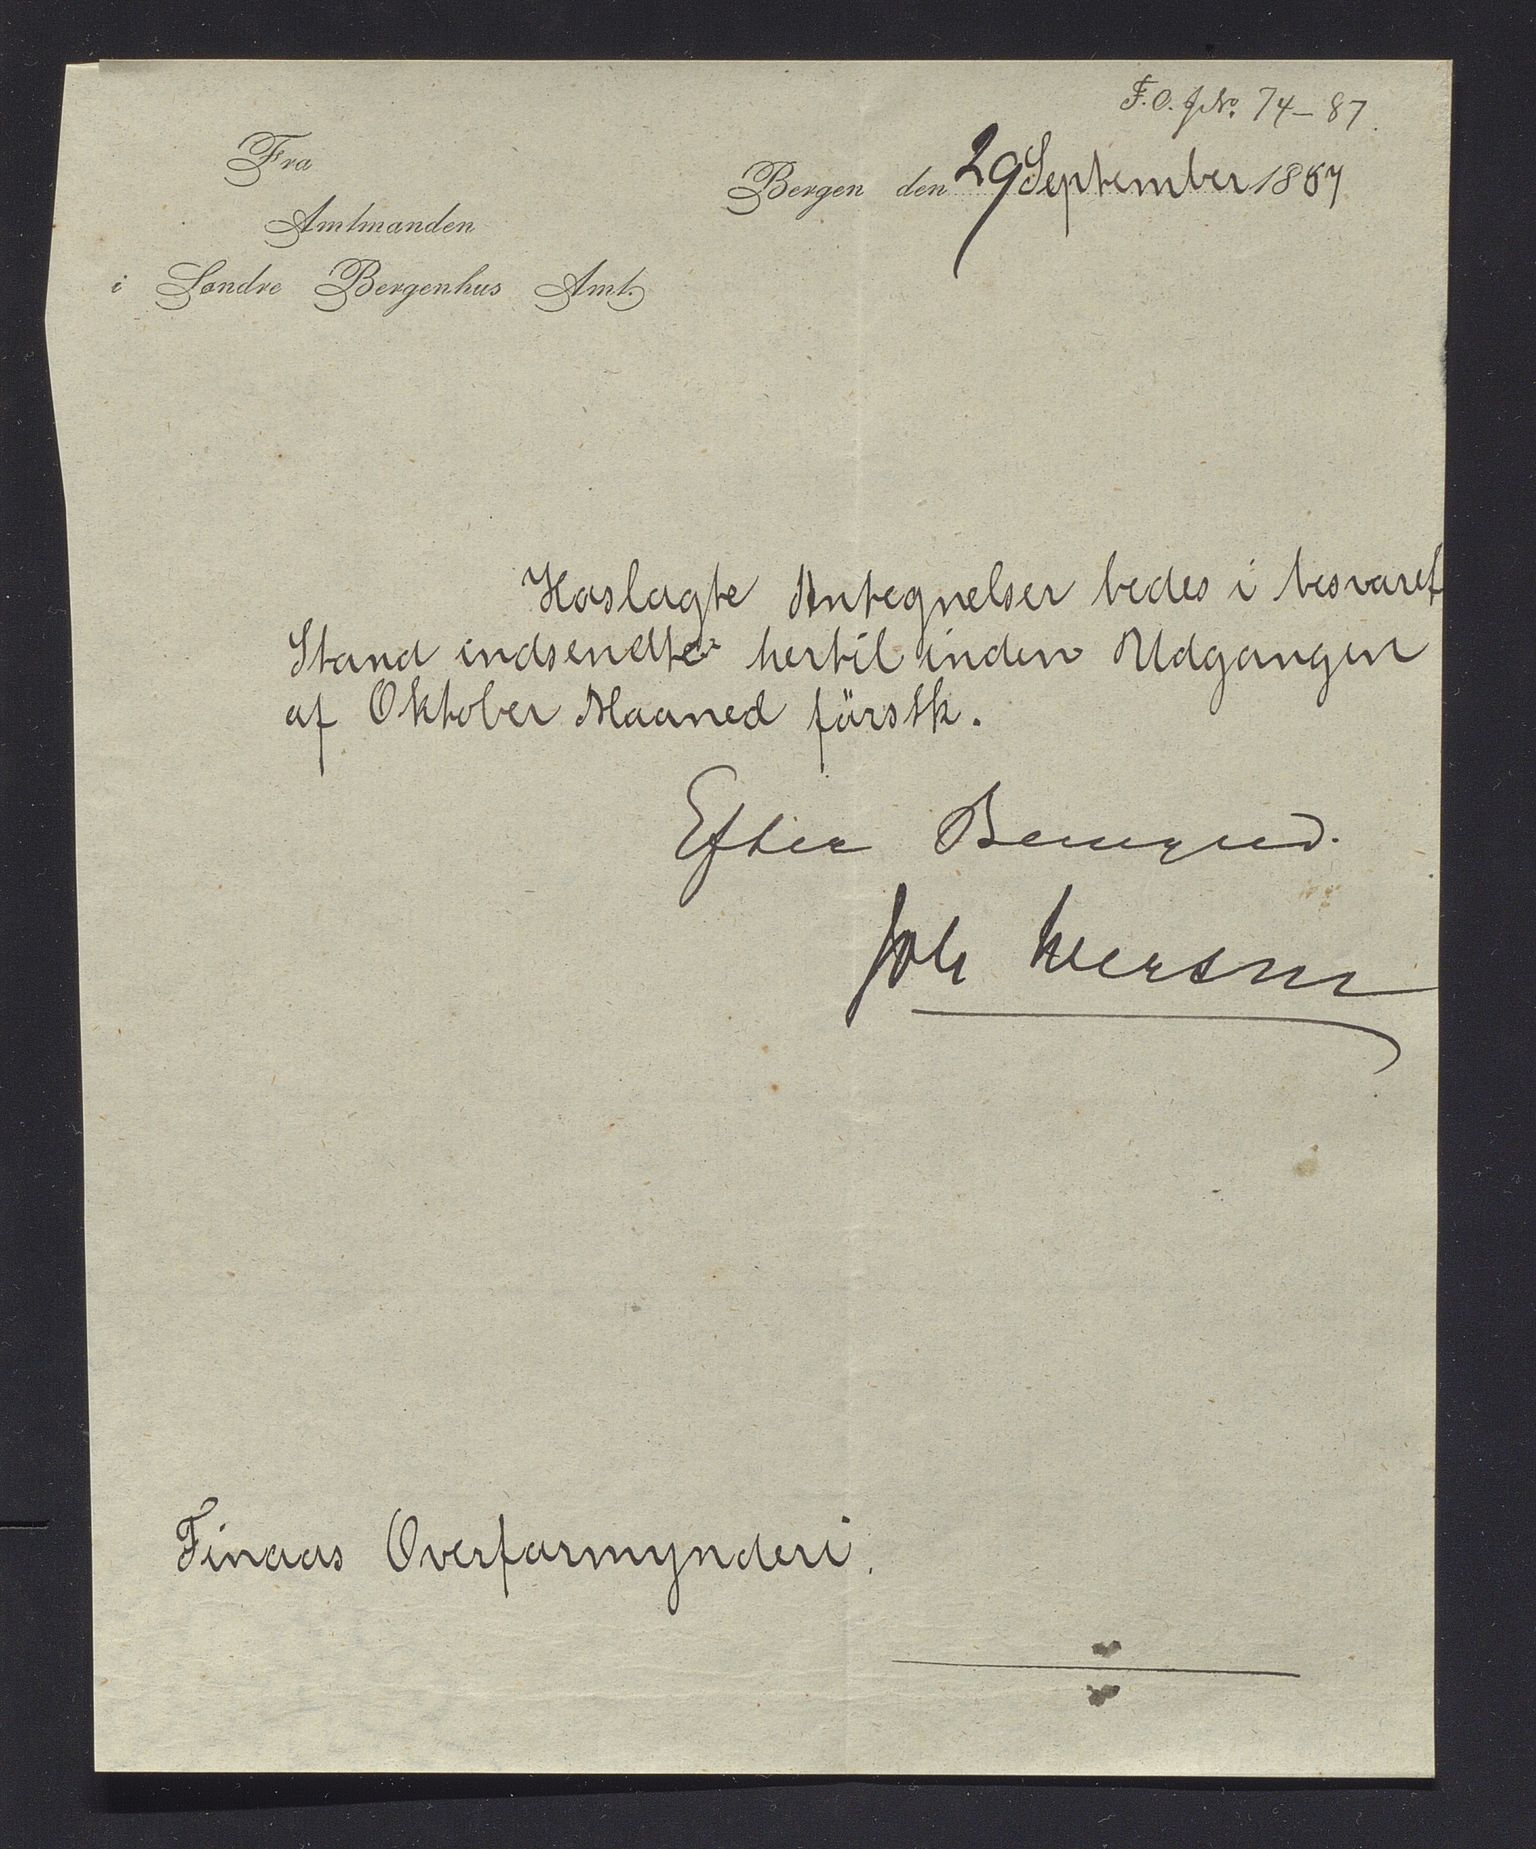 F.O. J.No. 74-87.
Fra
Amtmanden
i Søndre Bergenhus Amt.
Bergen den 29 September 1887
Hoslagte Antegnelser bedes i besvaret
Stand indsendte hertil inden Udgangen
af Oktober Maaned førstk.
Efter Bemynd.
Joh Iversen
Finaas Overformynderi.